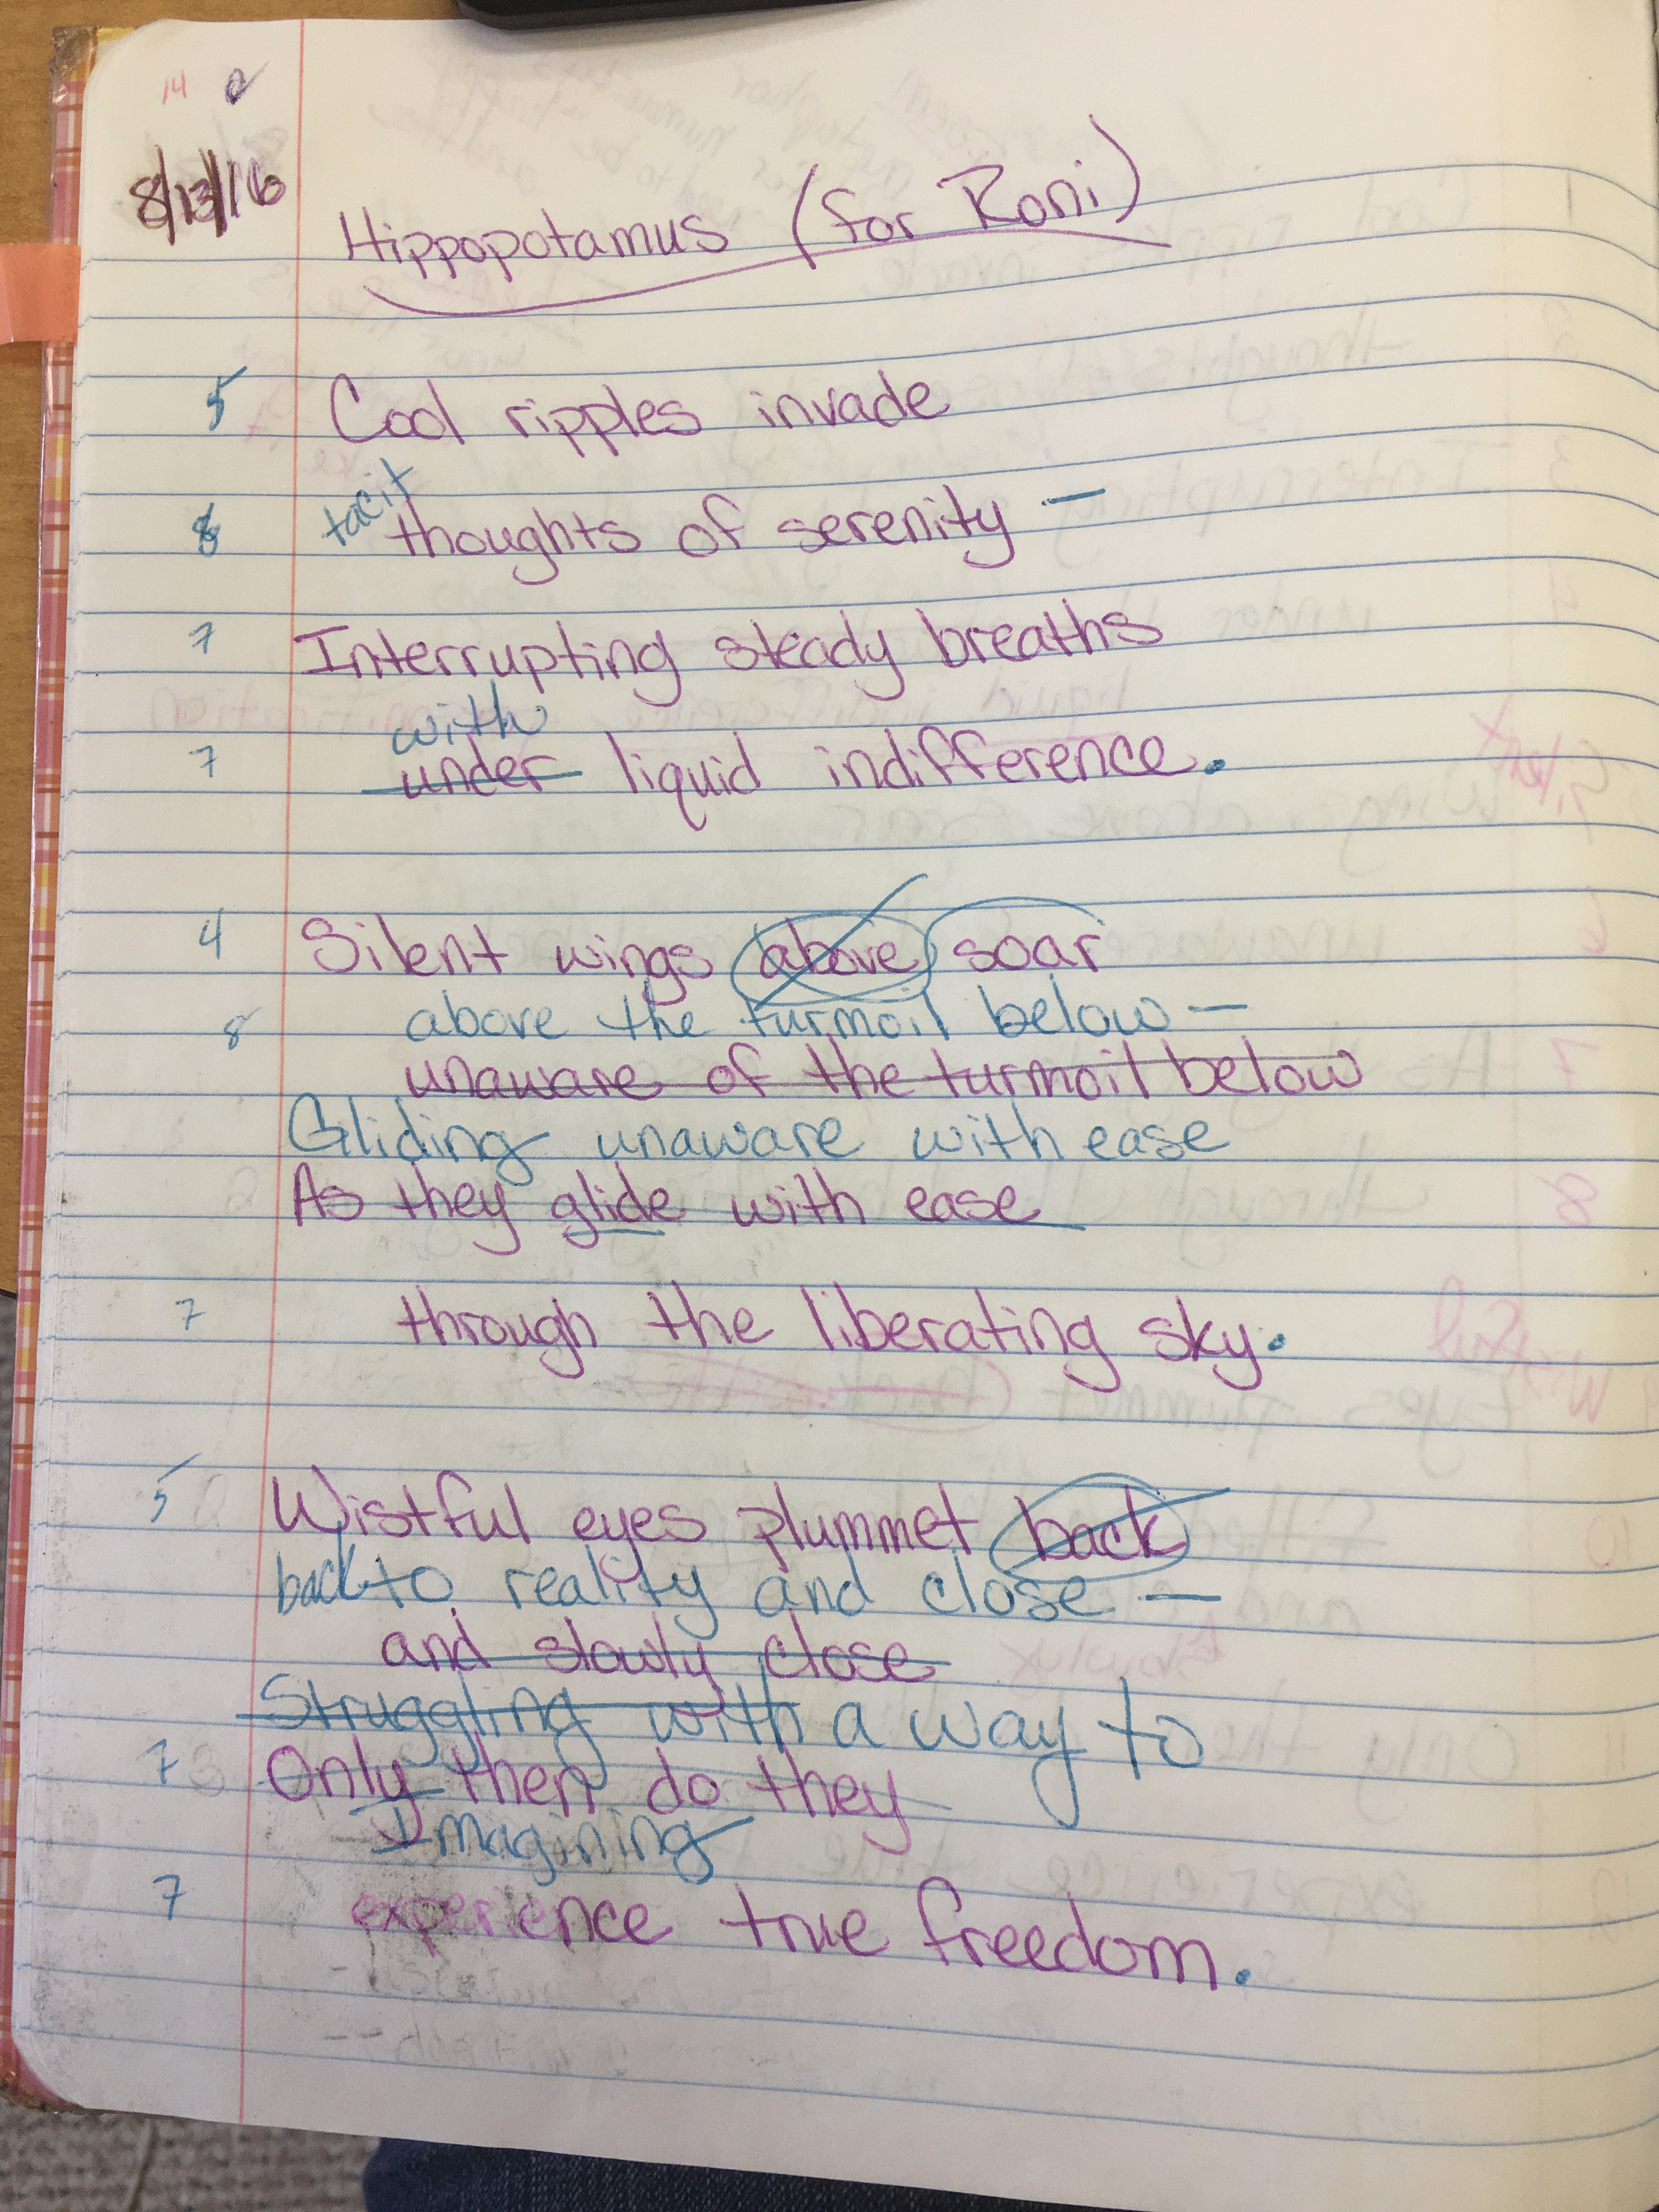 14
8/13/16
Hippopotamus (for Roni)
5 Cool ripples invade
8 tacit thoughts of serenity —
7 Interrupting steady breaths
with
7 under liquid indifference.
4 Silent wings above soar
8 above the turmoil below —
unaware of the turmoil below
Gliding unaware with ease
As they glide with ease
7 through the liberating sky.
5 Wistful eyes plummet back
back to reality and close —
and slowly close
Struggling with a way to
7 Only then do they
Imagining
7 experience true freedom.